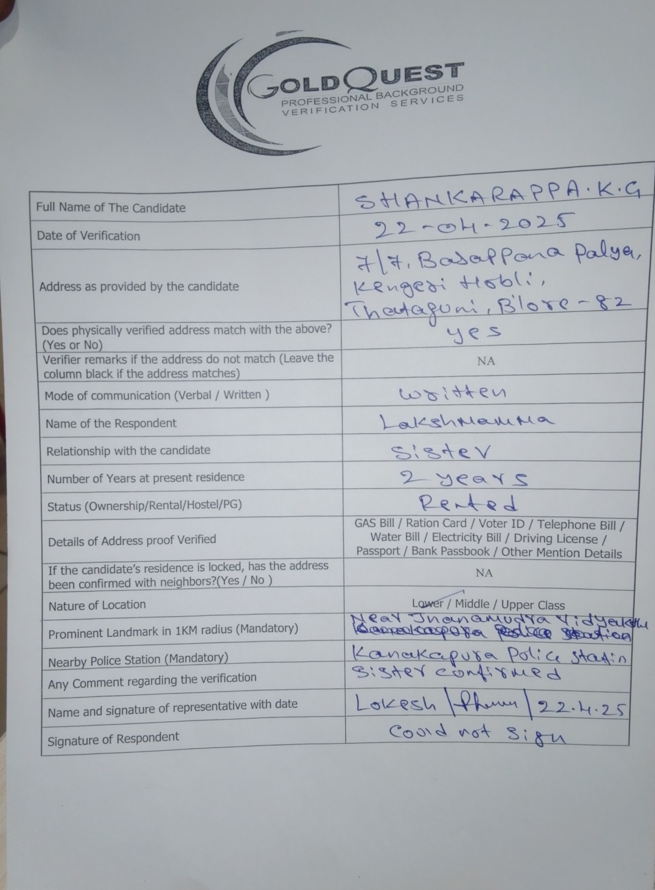 GOLDQUEST
PROFESSIONAL BACKGROUND
VERIFICATION SERVICES
Full Name of The Candidate SHANKARAPPA.K.G
Date of Verification 22-04-2025
Address as provided by the candidate 7/7, Basappana Palya,
Kengeri Hobli,
Thataguni, B'lore-82
Does physically verified address match with the above? yes
(Yes or No)
Verifier remarks if the address do not match (Leave the NA
column black if the address matches)
Mode of communication (Verbal / Written ) written
Name of the Respondent Lakshmamma
Relationship with the candidate Sister
Number of Years at present residence 2 years
Status (Ownership/Rental/Hostel/PG) Rented
Details of Address proof Verified GAS Bill / Ration Card / Voter ID / Telephone Bill /
Water Bill / Electricity Bill / Driving License /
Passport / Bank Passbook / Other Mention Details
If the candidate's residence is locked, has the address NA
been confirmed with neighbors?(Yes / No )
Nature of Location Lower / Middle / Upper Class
Prominent Landmark in 1KM radius (Mandatory) Near Jnanamudra
Nearby Police Station (Mandatory) Kanakapura Police Statin
Any Comment regarding the verification Sister confirmed
Name and signature of representative with date Lokesh / 22.4.25
Signature of Respondent Could not Sign